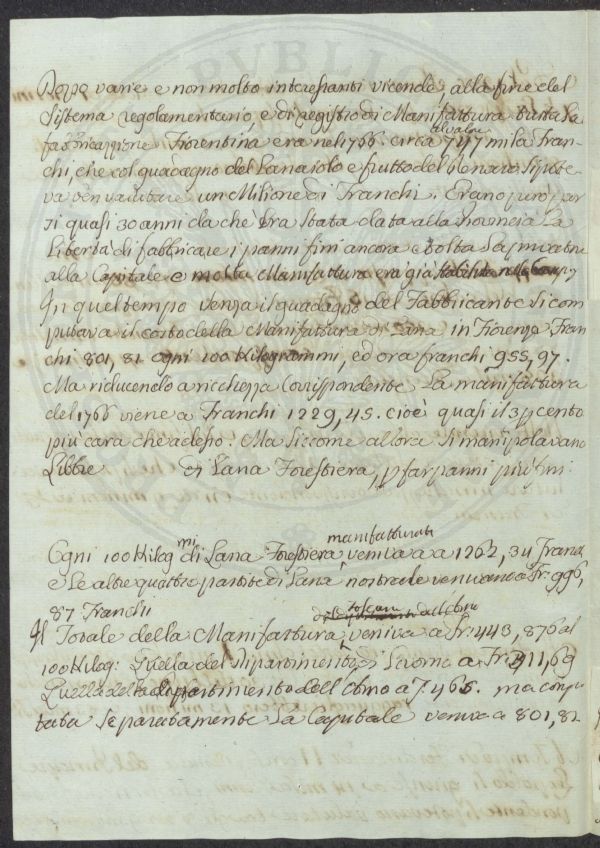 Dopo varie e non molto interessanti vicende, alla fine del
Sistema regolamentario, e di registro di Manifattura tutta la
il valore
fabbricazione Fiorentina era nel 1766. circa 747 mila Fran-
chi, che col guadagno del Lanaiolo e frutto del denaro si pote-
va valutare un Milione di Franchi. Erano però scor
si quasi 30 anni da che era stata data alla Provincia la
Libertà di fabbricare i panni fini ancora e tolta la privativa
alla Capitale e molta Manifattura era già
In quel tempo senza il guadagno del Fabbricante si com
putava il costo della Manifattura di Lana in Firenze Fran
chi 801, 81 ogni 100 Kilogrammi, ed ora franchi 955, 97.
Ma riducendo a ricchezza corrispondente La manifattura
del 1766 viene a Franchi 1229, 45. cioè quasi il 3 p cento
più cara che adesso: Ma siccome allora si manipolavano
Libbre di Lana Forestiera, p far panni più fini
manifatturati
Ogni 100 Kilog.mi di Lana Forestiera veniva a a 1262, 34 Franc
e Le altre quattro partite di Lana nostrale venivano a Fr: 996,
87 Franchi
Toscana dell'Arno
Il Totale della Manifattura veniva a Fr: 443, 876 al
100 Kilog: Quella del Dipartimento di Livorno a Fr: 411, 69
Quella del dipartimento dell'Arno a 7.465. ma compu
tata separatamente La Capitale veniva a 801, 82